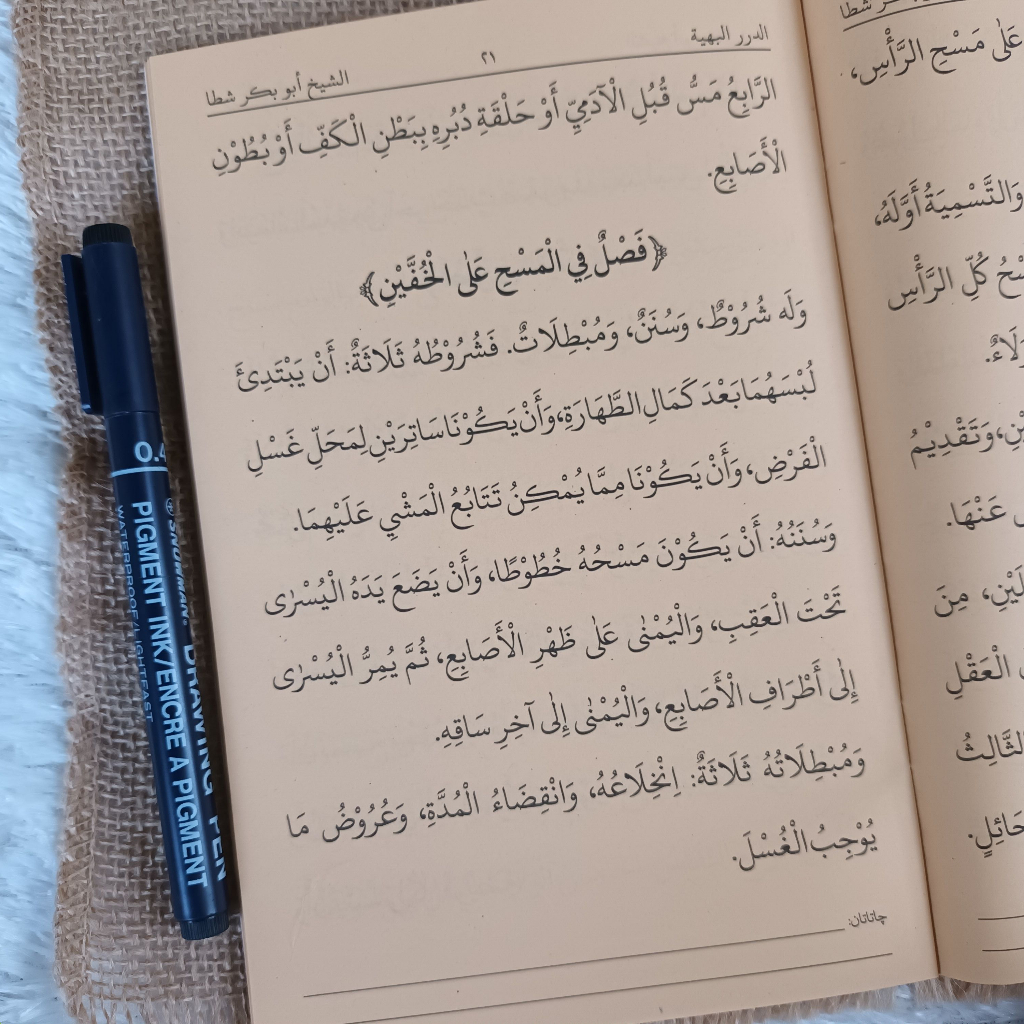 الدرر البهية ٢١ الشيخ أبو بكر شطا
الرَّابِعُ مَسُّ قُبُلِ الْآدَمِيِّ أَوْ حَلْقَةِ دُبُرِهِ بِبَطْنِ الْكَفِّ أَوْ بُطُوْنِ
الْأَصَابِعِ.
﴿فَصْلٌ فِي الْمَسْحِ عَلَى الْخُفَّيْنِ﴾
وَلَه شُرُوْطٌ، وَسُنَنٌ، وَمُبْطِلَاتٌ. فَشُرُوْطُهُ ثَلَاثَةٌ: أَنْ يَبْتَدِئَ
لُبْسَهُمَا بَعْدَ كَمَالِ الطَّهَارَةِ، وَأَنْ يَكُوْنَا سَاتِرَيْنِ لِمَحَلِّ غَسْلِ
الْفَرْضِ، وَأَنْ يَكُوْنَا مِمَّا يُمْكِنُ تَتَابُعُ الْمَشْيِ عَلَيْهِمَا.
وَسُنَنُهُ: أَنْ يَكُوْنَ مَسْحُهُ خُطُوْطًا، وَأَنْ يَضَعَ يَدَهُ الْيُسْرٰى
تَحْتَ الْعَقِبِ، وَالْيُمْنٰى عَلٰى ظَهْرِ الْأَصَابِعِ، ثُمَّ يُمِرُّ الْيُسْرٰى
إِلٰى أَطْرَافِ الْأَصَابِعِ، وَالْيُمْنٰى إِلٰى آخِرِ سَاقِهِ.
وَمُبْطِلَاتُهُ ثَلَاثَةٌ: اِنْخِلَاعُهُ، وَانْقِضَاءُ الْمُدَّةِ، وَعُرُوْضُ مَا
يُوْجِبُ الْغُسْلَ.
چاتاتان:
بكر شطا
عَلٰى مَسْحِ الرَّأْسِ،
وَالتَّسْمِيَةُ أَوَّلَهُ،
كُلِّ الرَّأْسِ
وَتَقْدِيْمُ
عَنْهَا.
مِنَ
الْعَقْلِ
الثَّالِثُ
حَائِلٍ.
SNOWMAN® DRAWING PEN
PIGMENT INK/ENCRE A PIGMENT
WATERPROOF/LIGHTFAST